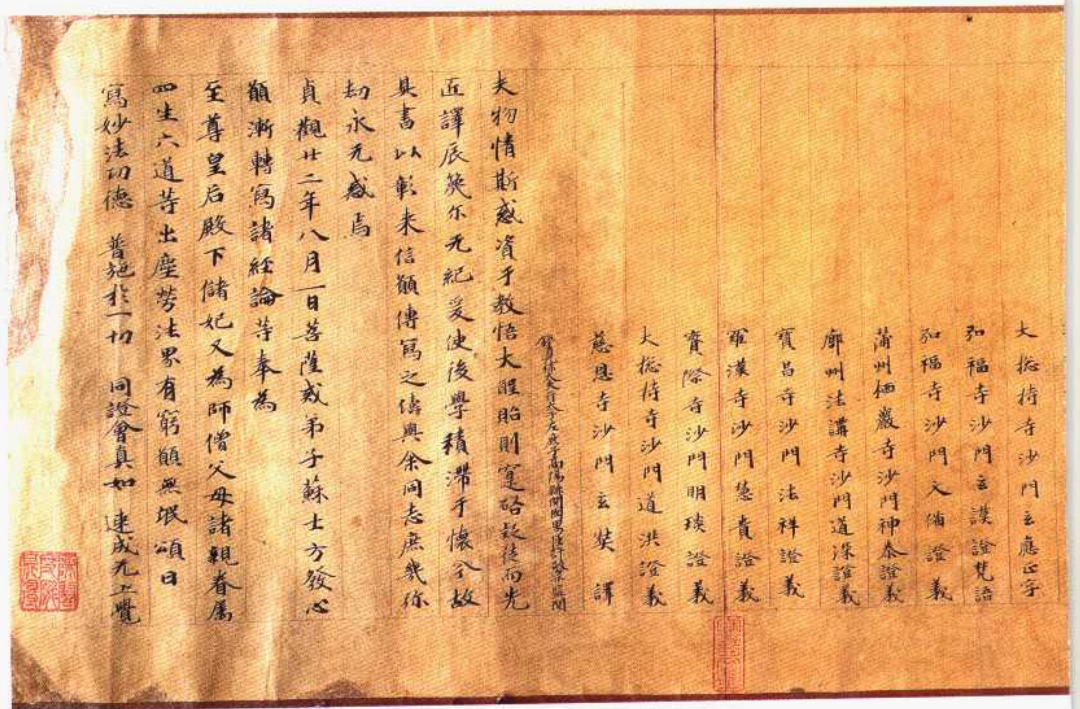 大揔持寺沙門玄應正字
弘福寺沙門玄謨證梵語
弘福寺沙門文備證義
蒲州栖巖寺沙門神泰證義
廓州法講寺沙門道深證義
寶昌寺沙門法祥證義
羅漢寺沙門慧貴證義
寳際寺沙門明琰證義
大揔持寺沙門道洪證義
慈恩寺沙門玄奘 譯
銀青光祿大夫行太子左庶子高陽縣開國男臣許敬宗監閱
夫物情斯惑資于教悟大聖貽則寔啓玆徒而先
匠譯辰莢尒无紀爰使後學積滯于懷今故
具書以彰來信願傳寫之儔與余同志庶幾弥
劫永无惑焉
貞觀廿二年八月一日菩薩戒弟子蘇士方發心
願漸轉寫諸經論等奉為
至尊皇后殿下儲妃又為師僧父母諸親眷属
四生六道等出塵勞法界有窮願無泯頌曰
寫妙法功德 普施於一切 同證會真如 速成无上覺